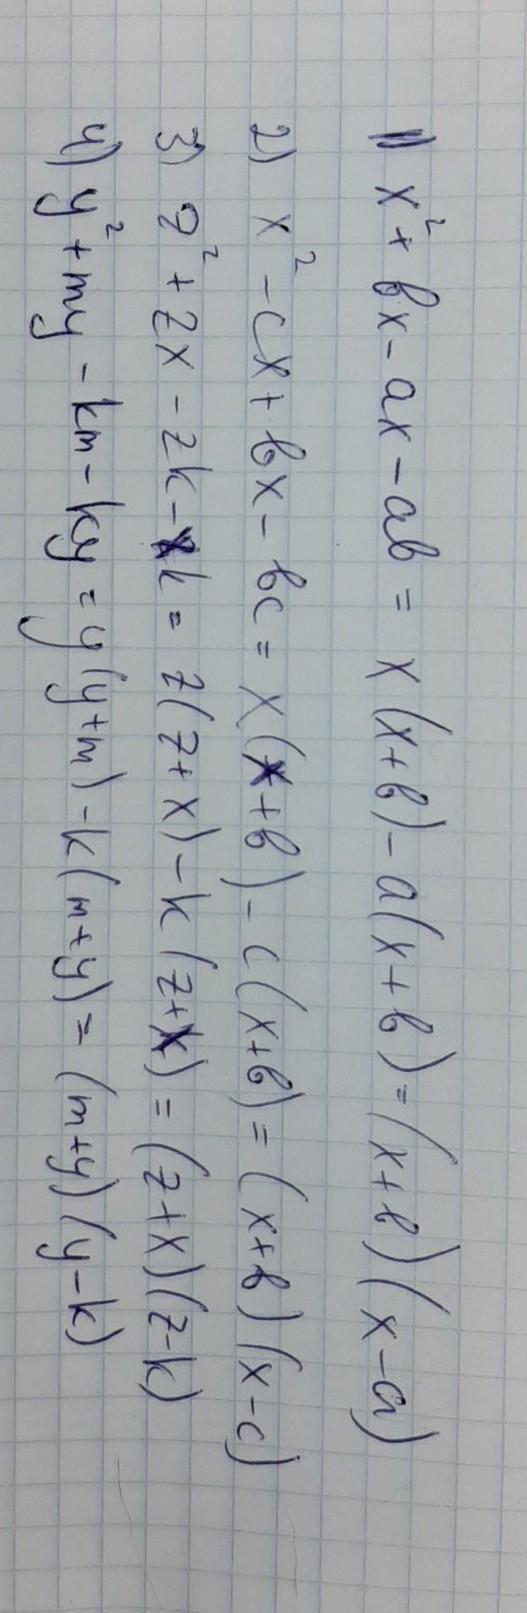 1) x² + bx - ax - ab = x(x+b) - a(x+b) = (x+b)(x-a)
2) x² - cx + bx - bc = x(x+b) - c(x+b) = (x+b)(x-c)
3) z² + zx - zk - xk = z(z+x) - k(z+x) = (z+x)(z-k)
4) y² + my - km - ky = y(y+m) - k(m+y) = (m+y)(y-k)